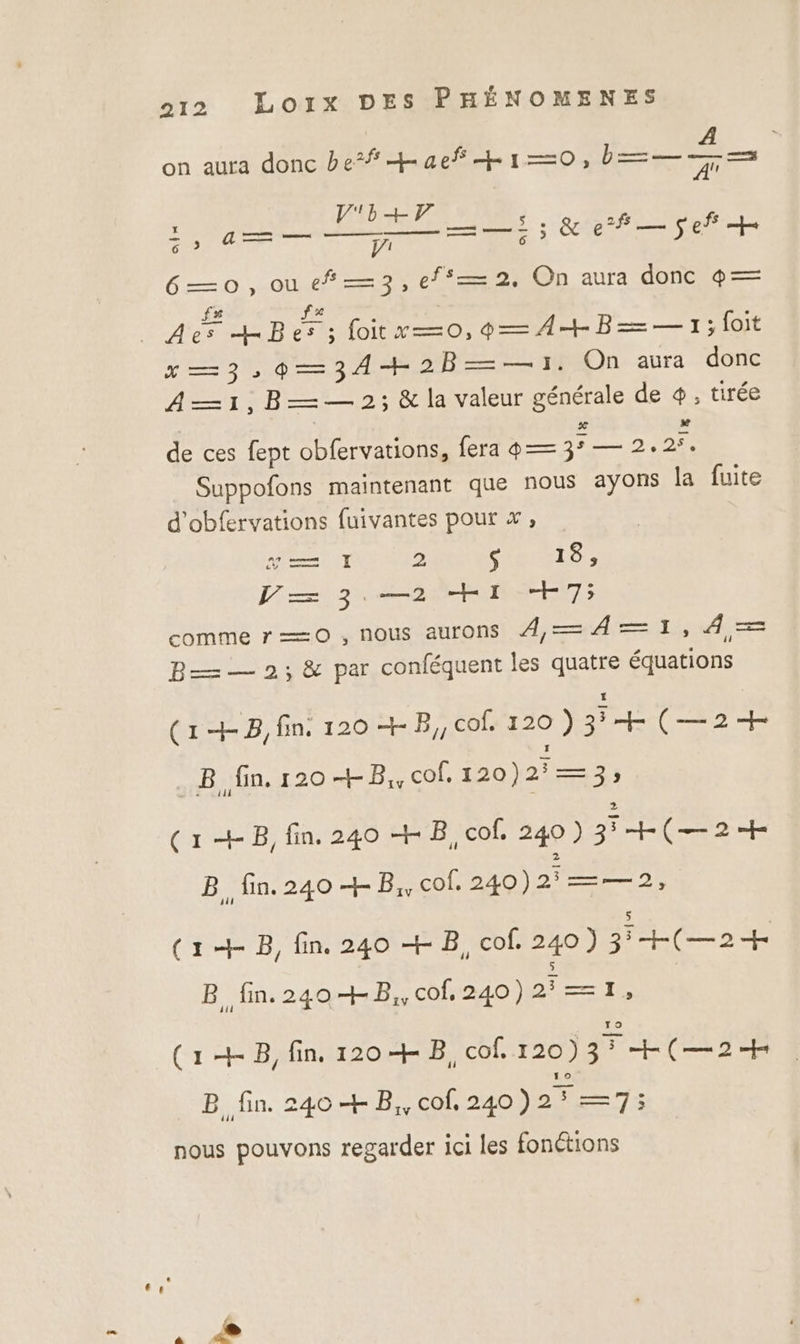 212 LOIX DES PHÉNOMENES
on aura donc be^{2fs} + ae^{fs} + 1 = 0, b = — A/A'' =
1/6, a = — (V''b + V)/V' = — 5/6; & e^{2fs} — 5e^{fs} +
6 = 0, ou e^{fs} = 3, e^{fs} = 2. On aura donc φ =
Ae^{fx/s} + Be^{fx/s}; ſoit x = 0, φ = A + B = — 1; ſoit
x = 3, φ = 3A + 2B = — 1. On aura donc
A = 1, B = — 2; & la valeur générale de φ, tirée
de ces ſept obſervations, ſera φ = 3^{x/s} — 2.2^{x/s}.
Suppoſons maintenant que nous ayons la ſuite
d'obſervations ſuivantes pour x,
x = 1 2 5 18,
V = 3 — 2 + 1 + 7;
comme r = 0, nous aurons A, = A = 1, A,, =
B = — 2; & par conſéquent les quatre équations
(1 + B, ſin. 120 + B,, coſ. 120) 3^{1/3} + (— 2 +
B,,, ſin. 120 + B,,, coſ. 120) 2^{1/3} = 3,
(1 + B, ſin. 240 + B,, coſ. 240) 3^{2/3} + (— 2 +
B,,, ſin. 240 + B,,, coſ. 240) 2^{2/3} = — 2,
(1 + B, ſin. 240 + B,, coſ. 240) 3^{5/3} + (— 2 +
B,,, ſin. 240 + B,,, coſ. 240) 2^{5/3} = 1,
(1 + B, ſin. 120 + B,, coſ. 120) 3^{10/3} + (— 2 +
B,,, ſin. 240 + B,,, coſ. 240) 2^{10/3} = 7;
nous pouvons regarder ici les fonctions